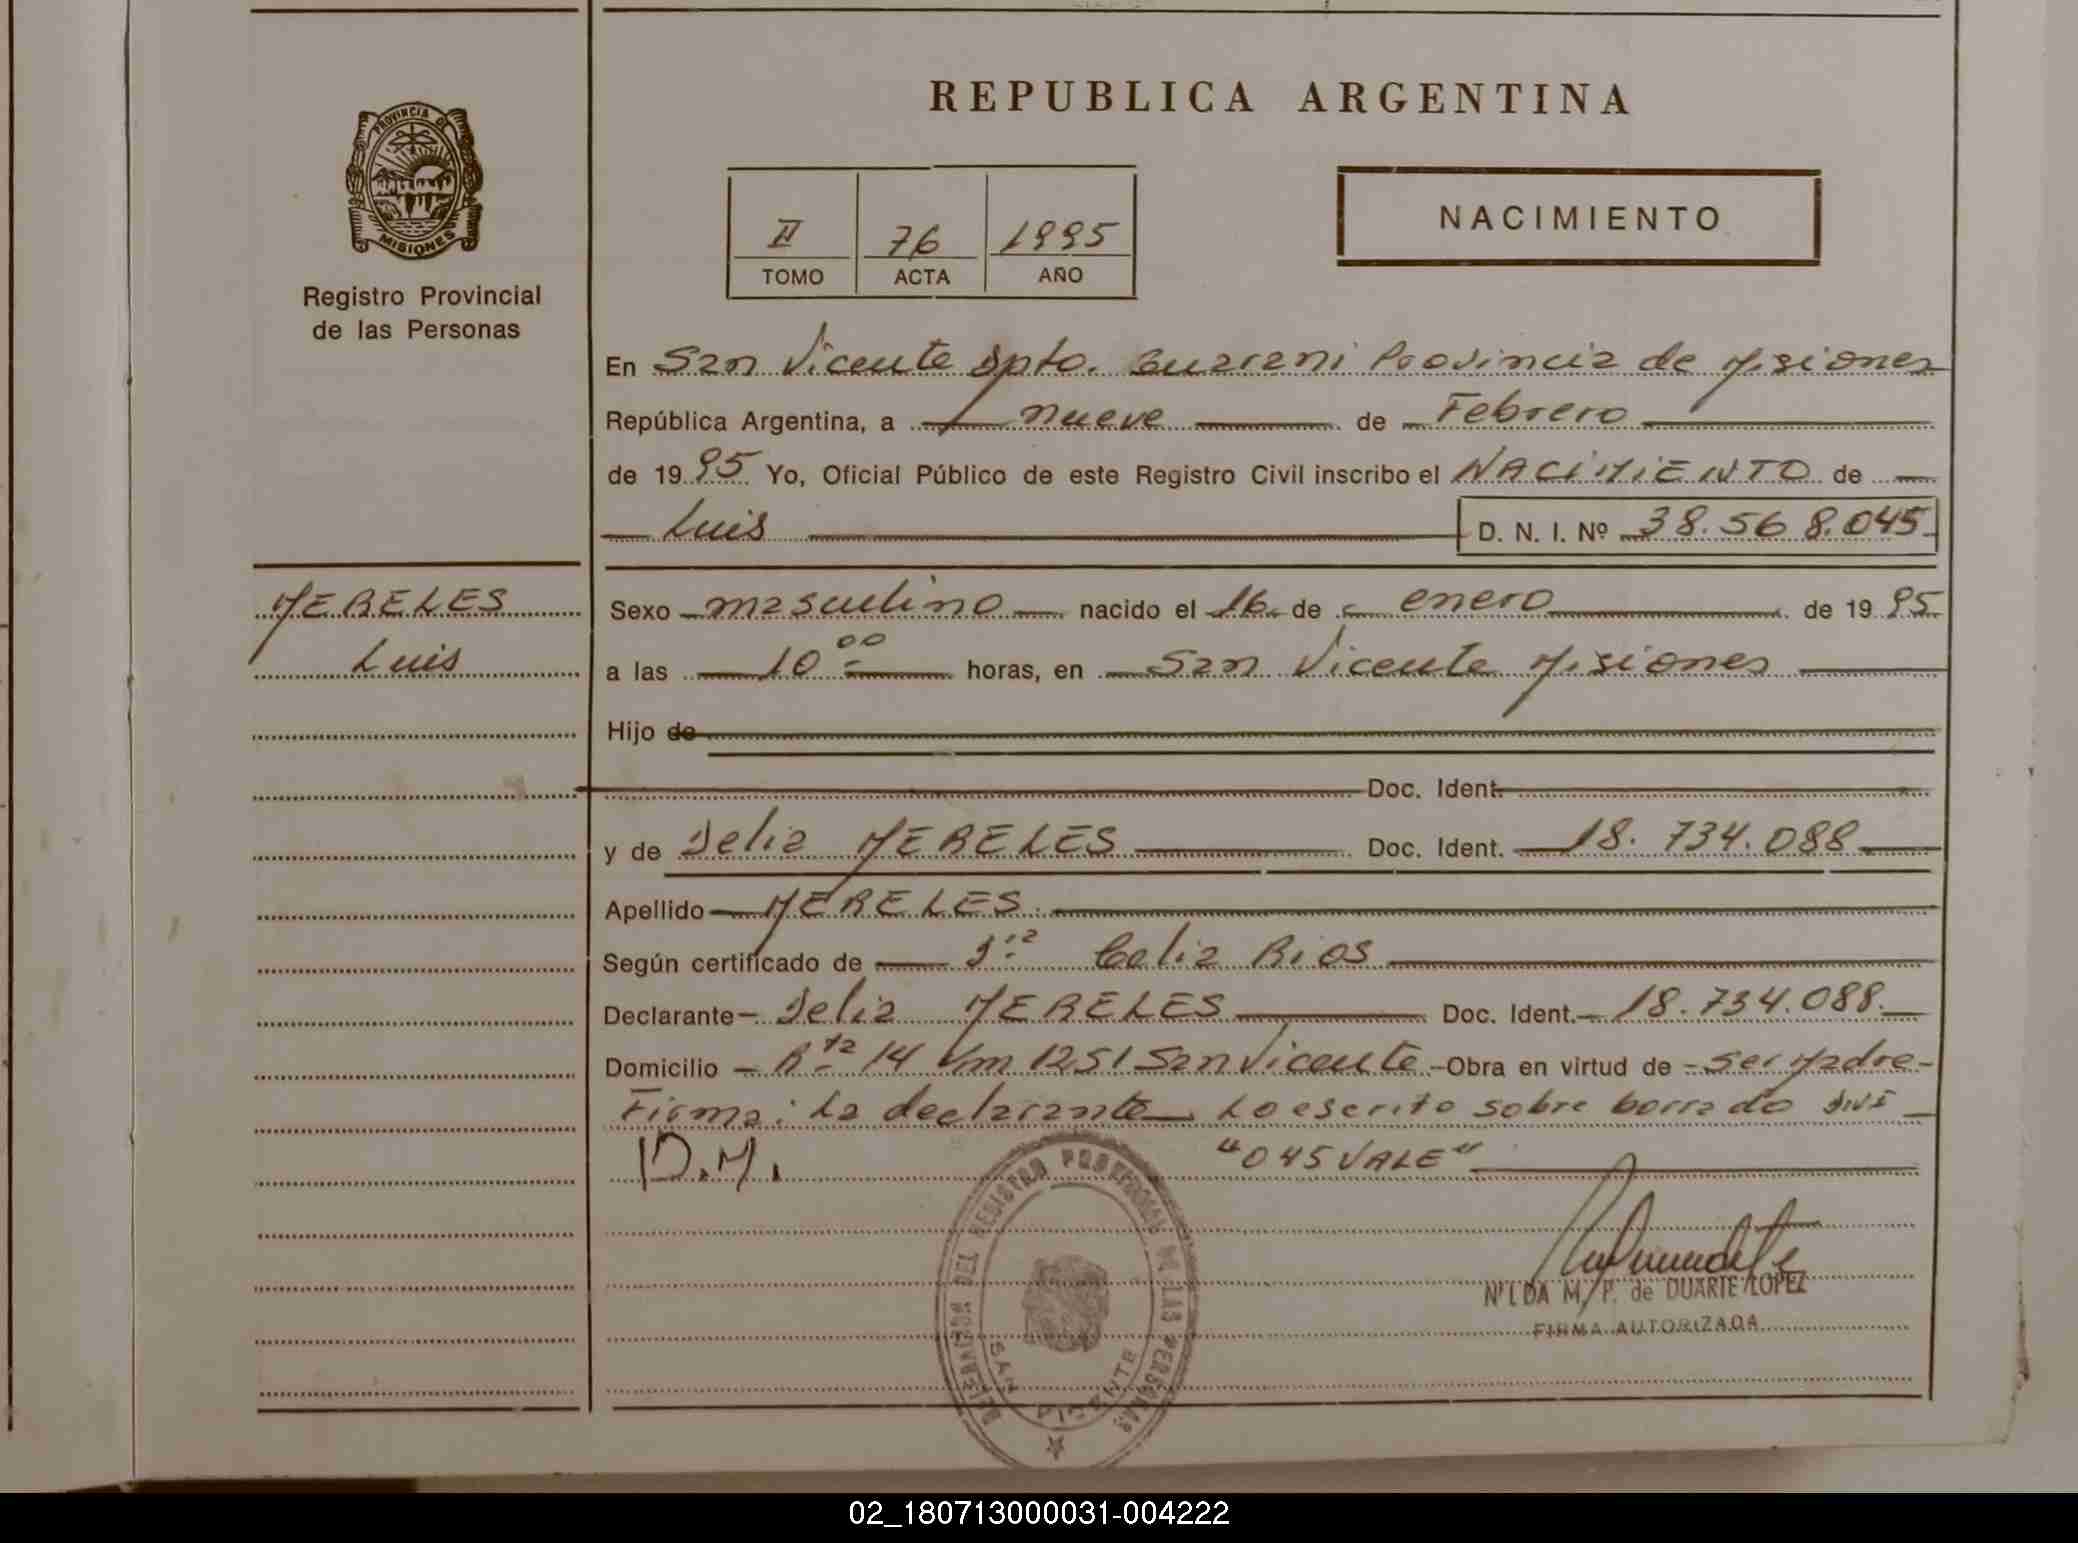 REPUBLICA ARGENTINA
PROVINCIA DE MISIONES
Registro Provincial
de las Personas
II 76 1995
TOMO ACTA AÑO
NACIMIENTO
En San Vicente Dpto. Guarani Provincia de Misiones
República Argentina, a nueve de Febrero
de 1995 Yo, Oficial Público de este Registro Civil inscribo el NACIMIENTO de
Luis D. N. I. Nº 38.568.045
MERELES
Luis
Sexo masculino nacido el 16 de enero de 1995
a las 10 00 horas, en San Vicente Misiones
Hijo de
Doc. Ident.
y de Delia MERELES Doc. Ident. 18.734.088
Apellido MERELES
Según certificado de Dra Celia Rios
Declarante Delia MERELES Doc. Ident. 18.734.088.
Domicilio Rta 14 Km 1251 San Vicente Obra en virtud de ser Madre
Firma: La declarante Lo escrito sobre borrado DNI
D.M. "045 VALE"
DEL REGISTRO PROVINCIAL DE LAS PERSONAS
SAN VICENTE
NILDA M. P. de DUARTE LOPEZ
FIRMA AUTORIZADA
02_180713000031-004222